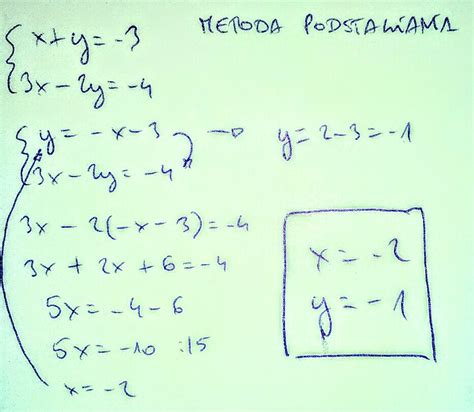 METODA PODSTAWIANIA
{ x + y = -3
3x - 2y = -4
{ y = -x - 3 → y = 2 - 3 = -1
3x - 2y = -4
3x - 2(-x - 3) = -4
3x + 2x + 6 = -4
5x = -4 - 6
5x = -10 :|5
x = -2
x = -2
y = -1